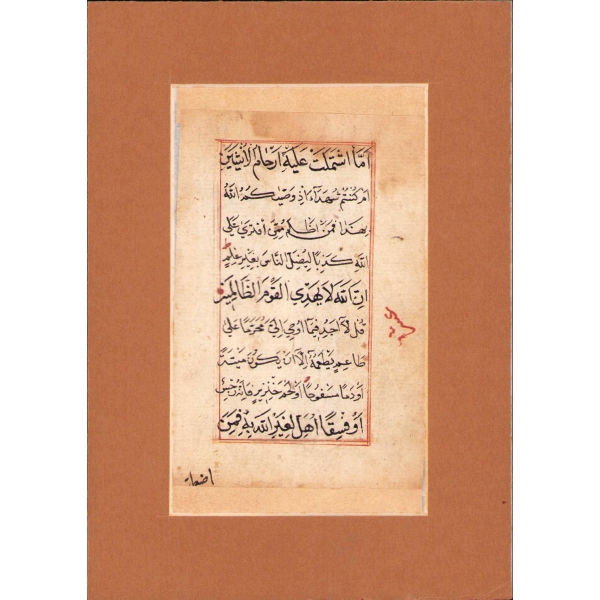 اَمَّا اشْتَمَلَتْ عَلَيْهِ اَرْحَامُ الْاُنْثَيَيْنِ
اَمْ كُنْتُمْ شُهَدَآءَ اِذْ وَصّٰيكُمُ اللّٰهُ
بِهٰذَا فَمَنْ اَظْلَمُ مِمَّنِ افْتَرٰي عَلَي
اللّٰهِ كَذِبًا لِيُضِلَّ النَّاسَ بِغَيْرِ عِلْمٍ
اِنَّ اللّٰهَ لَا يَهْدِي الْقَوْمَ الظَّالِمِينَ
قُلْ لَا اَجِدُ فِيمَا اُوحِيَ اِلَيَّ مُحَرَّمًا عَلٰي
طَاعِمٍ يَطْعَمُهُ اِلَّا اَنْ يَكُونَ مَيْتَةً
اَوْ دَمًا مَسْفُوحًا اَوْ لَحْمَ خِنْزِيرٍ فَاِنَّهُ رِجْسٌ
اَوْ فِسْقًا اُهِلَّ لِغَيْرِ اللّٰهِ بِهِ فَمَنِ